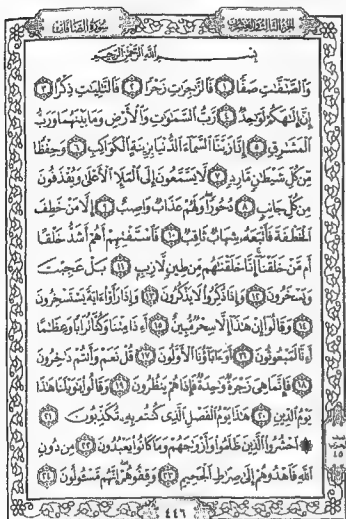 الجزء الثالث والعشرون
سورة الصافات
بِسْمِ اللَّهِ الرَّحْمَٰنِ الرَّحِيمِ
وَالصَّٰٓفَّٰتِ صَفًّا ١ فَالزَّٰجِرَٰتِ زَجْرًا ٢ فَالتَّٰلِيَٰتِ ذِكْرًا ٣
إِنَّ إِلَٰهَكُمْ لَوَٰحِدٌ ٤ رَّبُّ السَّمَٰوَٰتِ وَالْأَرْضِ وَمَا بَيْنَهُمَا وَرَبُّ
الْمَشَٰرِقِ ٥ إِنَّا زَيَّنَّا السَّمَآءَ الدُّنْيَا بِزِينَةٍ الْكَوَاكِبِ ٦ وَحِفْظًا
مِّن كُلِّ شَيْطَٰنٍ مَّارِدٍ ٧ لَّا يَسَّمَّعُونَ إِلَى الْمَلَإِ الْأَعْلَىٰ وَيُقْذَفُونَ
مِن كُلِّ جَانِبٍ ٨ دُحُورًا وَلَهُمْ عَذَابٌ وَاصِبٌ ٩ إِلَّا مَنْ خَطِفَ
الْخَطْفَةَ فَأَتْبَعَهُ شِهَابٌ ثَاقِبٌ ١٠ فَاسْتَفْتِهِمْ أَهُمْ أَشَدُّ خَلْقًا
أَم مَّنْ خَلَقْنَآ إِنَّا خَلَقْنَٰهُم مِّن طِينٍ لَّازِبٍ ١١ بَلْ عَجِبْتَ
وَيَسْخَرُونَ ١٢ وَإِذَا ذُكِّرُوا لَا يَذْكُرُونَ ١٣ وَإِذَا رَأَوْا ءَايَةً يَسْتَسْخِرُونَ
١٤ وَقَالُوٓا إِنْ هَٰذَآ إِلَّا سِحْرٌ مُّبِينٌ ١٥ أَءِذَا مِتْنَا وَكُنَّا تُرَابًا وَعِظَٰمًا
أَءِنَّا لَمَبْعُوثُونَ ١٦ أَوَءَابَآؤُنَا الْأَوَّلُونَ ١٧ قُلْ نَعَمْ وَأَنتُمْ دَٰخِرُونَ
١٨ فَإِنَّمَا هِيَ زَجْرَةٌ وَٰحِدَةٌ فَإِذَا هُمْ يَنظُرُونَ ١٩ وَقَالُوا يَٰوَيْلَنَا هَٰذَا
يَوْمُ الدِّينِ ٢٠ هَٰذَا يَوْمُ الْفَصْلِ الَّذِي كُنتُم بِهِ تُكَذِّبُونَ ٢١
۞ احْشُرُوا الَّذِينَ ظَلَمُوا وَأَزْوَٰجَهُمْ وَمَا كَانُوا يَعْبُدُونَ ٢٢ مِن دُونِ
اللَّهِ فَاهْدُوهُمْ إِلَىٰ صِرَٰطِ الْجَحِيمِ ٢٣ وَقِفُوهُمْ إِنَّهُم مَّسْئُولُونَ ٢٤
٤٤٦